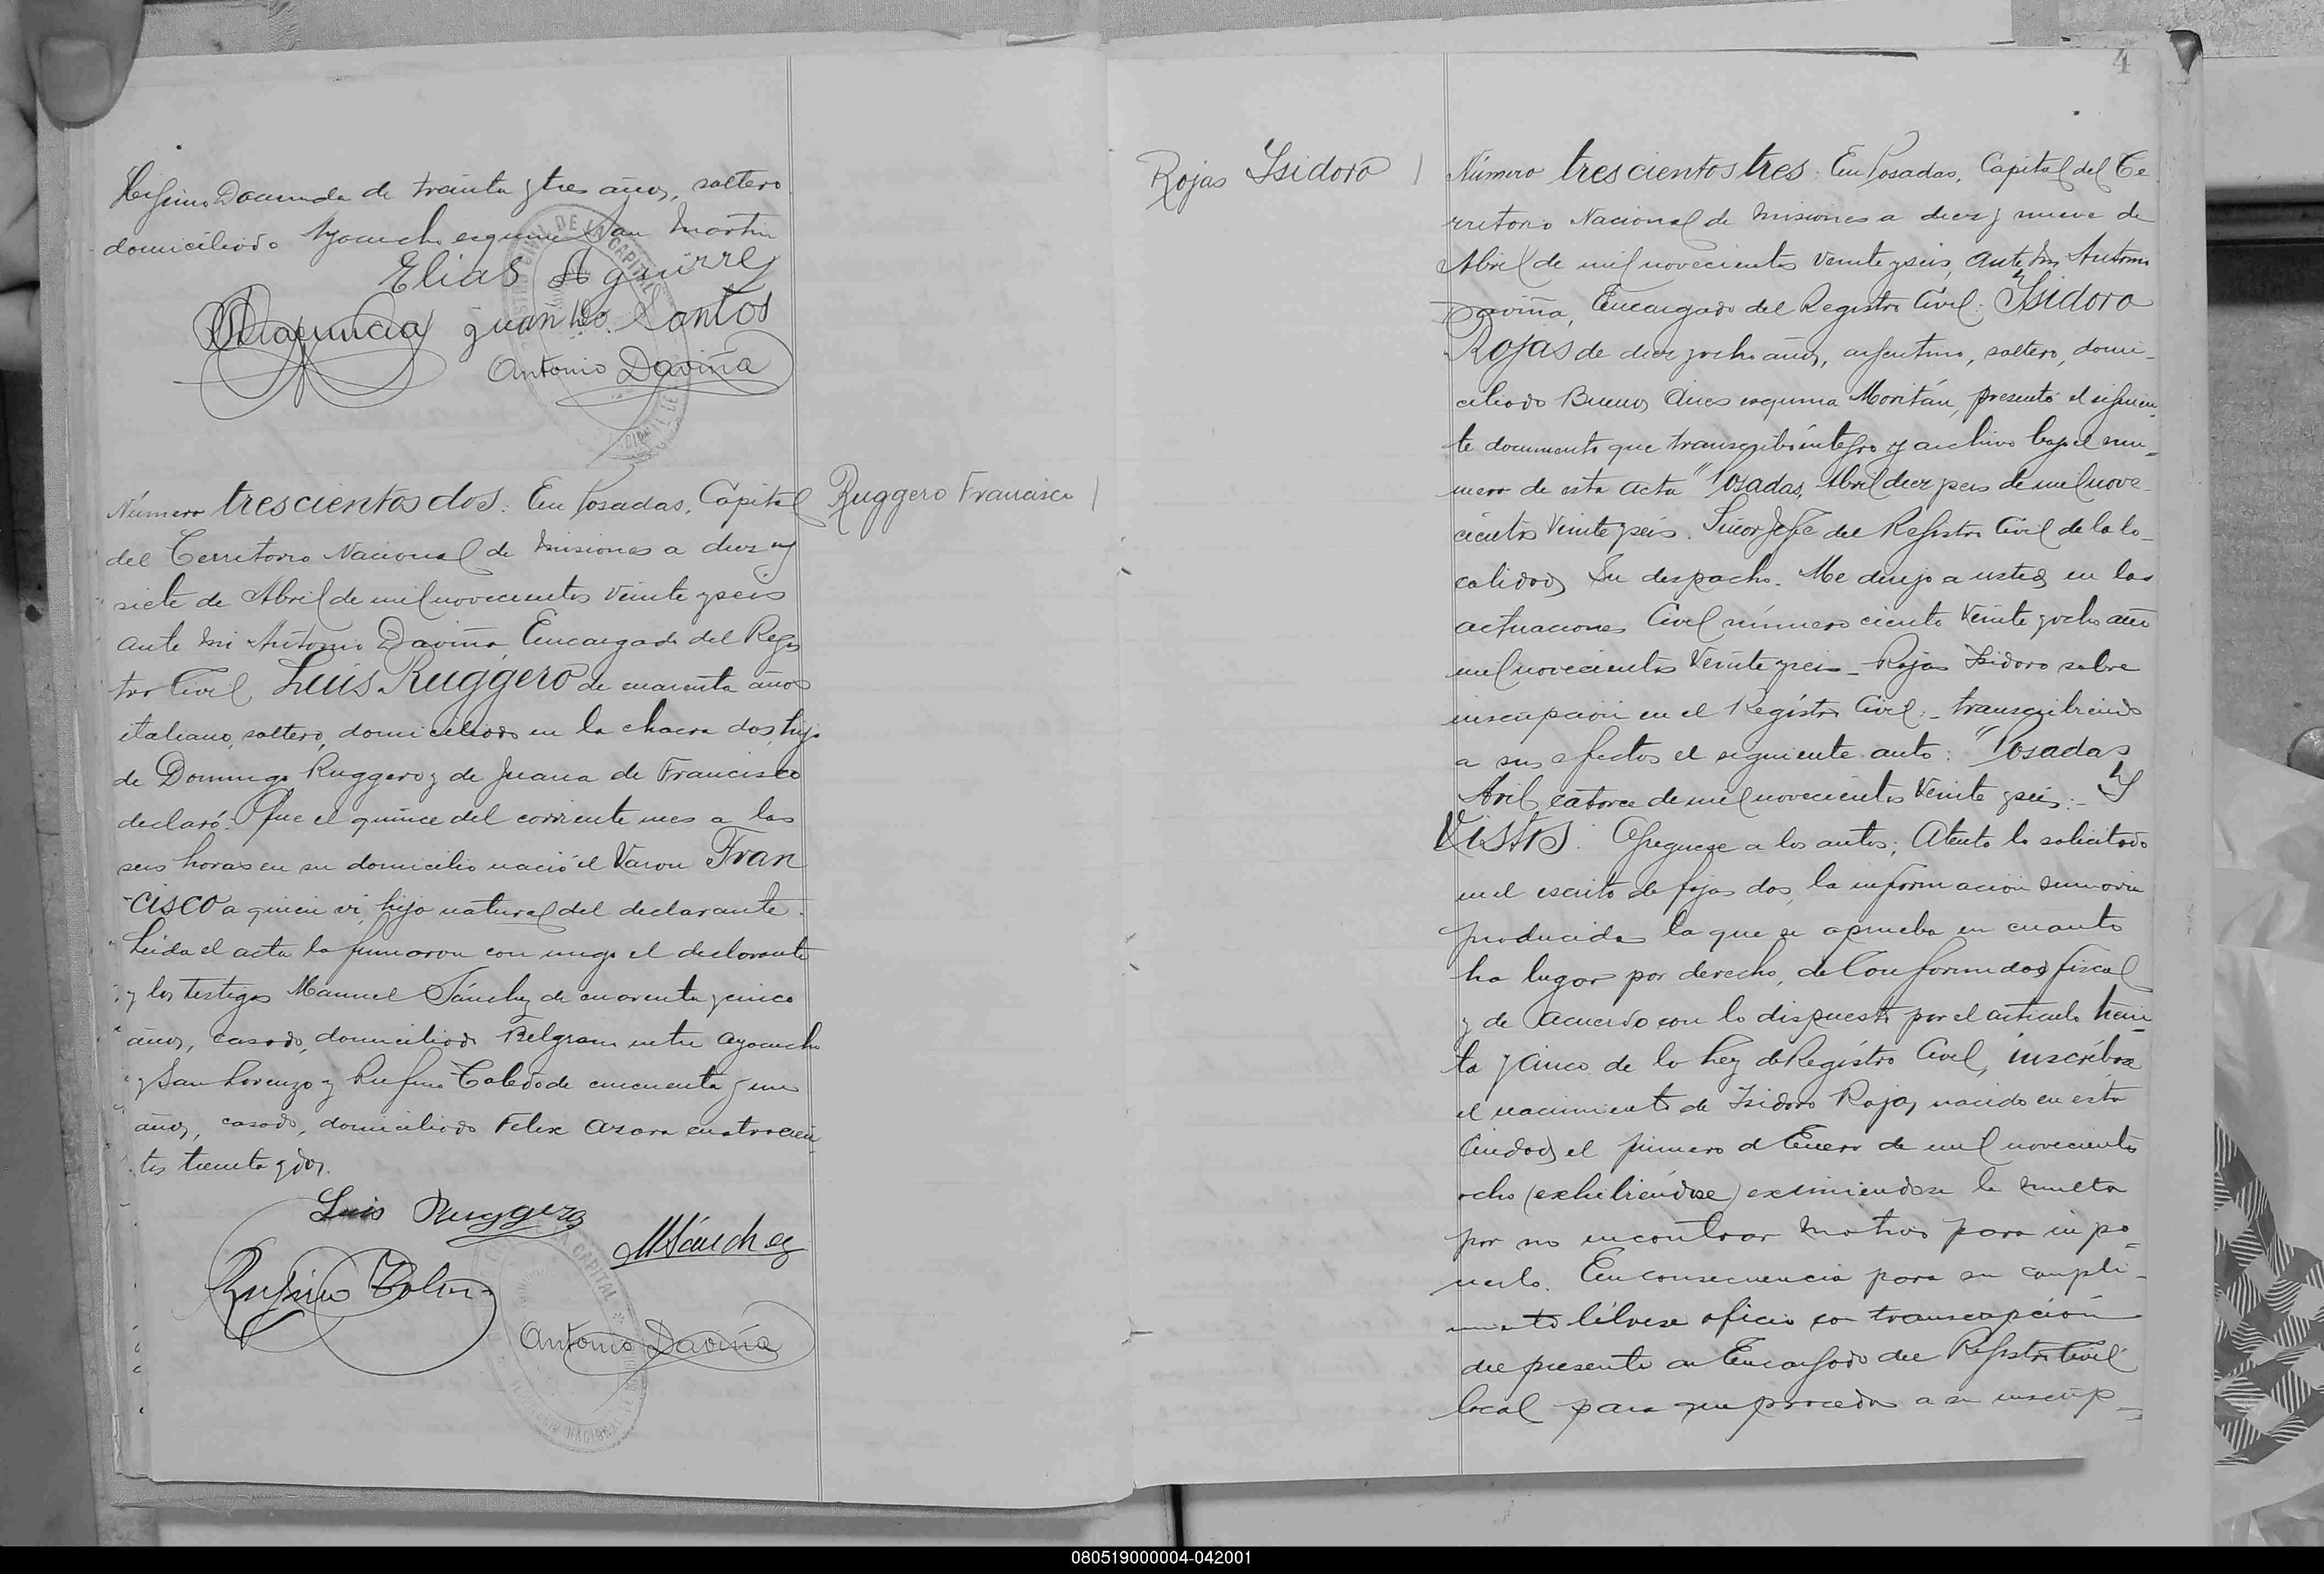 Higinio Dacunda de treinta y tres años, soltero
domiciliado Ayacucho esquina San Martin
Elias Aguirre
Juan Do. Santos
Antonio Daviña
Número trescientos dos: En Posadas, Capital
Ruggero Francisco
del Territorio Nacional de Misiones a diez y
siete de Abril de mil novecientos veinte y seis
ante mi Antonio Daviña Encargado del Regis
tro Civil, Luis Ruggero de cuarenta años
italiano, soltero, domiciliado en la chacra dos, hijo
de Domingo Ruggero y de Juana de Francisco
declaró: Que el quince del corriente mes a las
seis horas en su domicilio nació el varon Fran
cisco a quien vi, hijo natural del declarante.
Leida el acta la firmaron con migo el declarante
y los testigos Manuel Sánchez de cuarenta y cinco
años, casado, domiciliado Belgrano entre Ayacucho
y San Lorenzo y Rufino Toledo de cincuenta y un
años, casado, domiciliado Felix Azara cuatrocien
tos treinta y dos.
Luis Ruggero
MSánchez
Rufino Toledo
Antonio Daviña
4
Rojas Isidoro
Número trescientos tres: En Posadas, Capital del Te
rritorio Nacional de Misiones a diez y nueve de
Abril de mil novecientos veinte y seis, ante mi Antonio
Daviña, Encargado del Registro Civil: Isidoro
Rojas de diez y ocho años, argentino, soltero, domi-
ciliado Buenos Aires esquina Moritán, presentó el siguien
te documento que transcribo íntegro y archivo bajo el nú-
mero de esta acta "Posadas, Abril diez y seis de mil nove-
cientos veinte y seis. Señor Jefe del Registro Civil de la lo-
calidad, Su despacho. Me dirijo a usted en las
actuaciones Civil número ciento veinte y ocho año
mil novecientos veinte y seis - Rojas Isidoro sobre
inscripción en el Registro Civil:- transcribiendo
a sus efectos el siguiente auto: "Posadas
Abril catorce de mil novecientos veinte y seis:- Y
Vistos: Agreguese a los autos; Atento lo solicitado
en el escrito de fojas dos, la información sumaria
producida la que se aprueba en cuanto
ha lugar por derecho, de conformidad fiscal
y de acuerdo con lo dispuesto por el articulo trein-
ta y cinco de la Ley de Registro Civil, inscríbase
el nacimiento de Isidoro Rojas nacido en esta
Ciudad el primero de Enero de mil novecientos
ocho (exhibiéndose) eximiendose la multa
por no encontrar motivo para impo-
nerla. En consecuencia para su cumpli-
miento líbrese oficio con transcripción
del presente al Encargado del Registro Civil
local para que proceda a su inscrip-
080519000004-042001